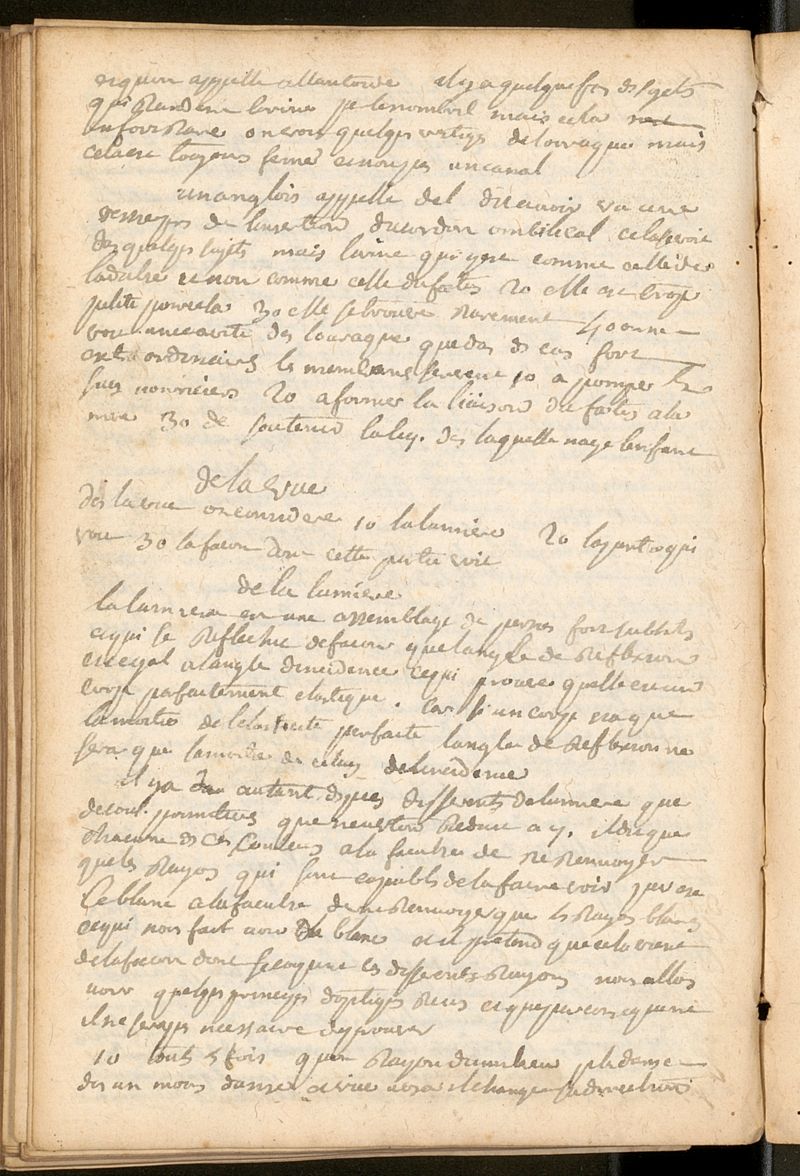 cequon appelle allantoide il y a quelque fois des sujets
qui rendent lurine par le nombril mais cela
on voit quelques vestiges de louraque mais
cela est toujours fermé et non pas un canal
un anglois appellé del dit avoir vu une
de linsertion du cordon ombilical cela se voit
des quelques sujets mais lurine qui y est comme celle de
ladulte et non comme celle du fœtus 20 elle est trop
petite pour cela 30 elle se trouve rarement 40 on ne
voit une cavité des louraque que das des cas fort
extraordinaires les membranes servent 10 a pomper les
sucs nourriciers 20 a former la liaison du fœtus a la
mere 30 de soutenir la liq. des laquelle nage lenfant
de la vue
des la vue on considere 10 la lumiere 20 la partie qui
voit 30 la facon dont cette partie voit
de la lumiere
la lumiere est une assemblage de fort subtils
et qui se reflechit de facon que langle de reflexion
est egal a langle dincidence ce qui prouve quelle est un
corps parfaitement elastique. Car si un corps na que
la moitié de lelasticité parfaite langle de reflexion ne
sera que la moitié de celuy de lincidence
il y a autant despeces differentes de lumiere que
de coul. primitives que neuton reduit a 7. il dit que
chacune de ces couleurs a la faculté de ne renvoyer
que les rayos qui sont capables de la faire voir par ex
le blanc a la faculté de ne renvoyer que les rayos blancs
ce qui nous fait voir du blanc et il pretend que cela vient
de la facon dont les differents rayons nous allos
voir quelques principes doptiques et que par consequent
il ne sera pas necessaire de prouver
10 touts les fois quun rayon dun milieu plus danse
des un moins danse il change sa direction